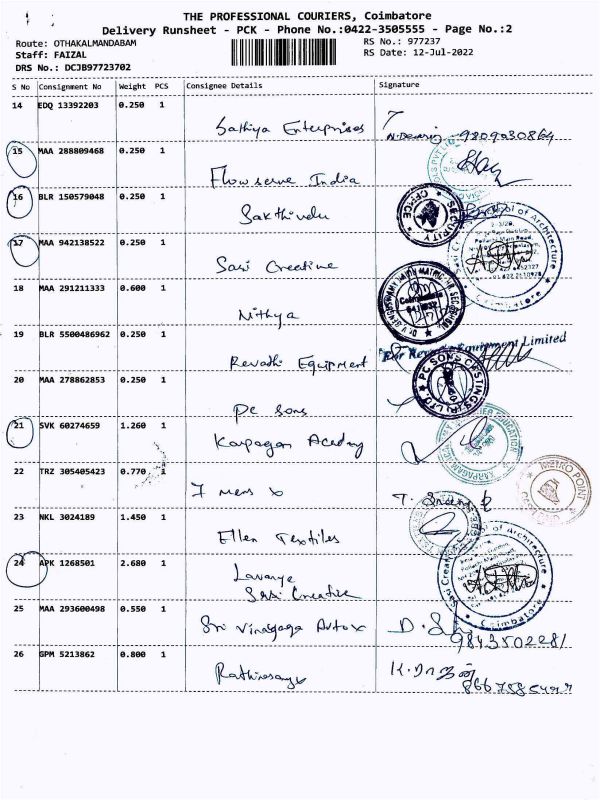 THE PROFESSIONAL COURIERS, Coimbatore
Delivery Runsheet - PCK - Phone No.:0422-3505555 - Page No.:2
Route: OTHAKALMANDABAM RS No.: 977237
Staff: FAIZAL RS Date: 12-Jul-2022
DRS No.: DCJB97723702
S No Consignment No Weight PCS Consignee Details Signature
14 EDQ 13392203 0.250 1
Sathiya Enterprises 9809030864
15 MAA 288809468 0.250 1
Flowserve India
16 BLR 150579048 0.250 1
Sakthivelu
SECURITY OFFICE
17 MAA 942138522 0.250 1
Sasi Creative
Sasi Creative School of Architecture
Coimbatore
18 MAA 291211333 0.600 1
Nithya
19 BLR 5500486962 0.250 1
Revathi Equipment
For Revathi Equipment Limited
20 MAA 278862853 0.250 1
Pc Sons
PC SONS CASTINGS (P) LTD.
21 SVK 60274659 1.260 1
Karpagam Acadmy
KARPAGAM ACADEMY OF HIGHER EDUCATION
22 TRZ 305405423 0.770 1
7 mens x
METRO POINT
23 NKL 3024189 1.450 1
Ellen Textiles
24 APK 1268501 2.680 1
Lavanya
Sasi Creative
Sasi Creative School of Architecture
Coimbatore
25 MAA 293600498 0.550 1
Sri Vinayaga Autox
9843502281
26 GPM 5213862 0.800 1
K. ராதன்